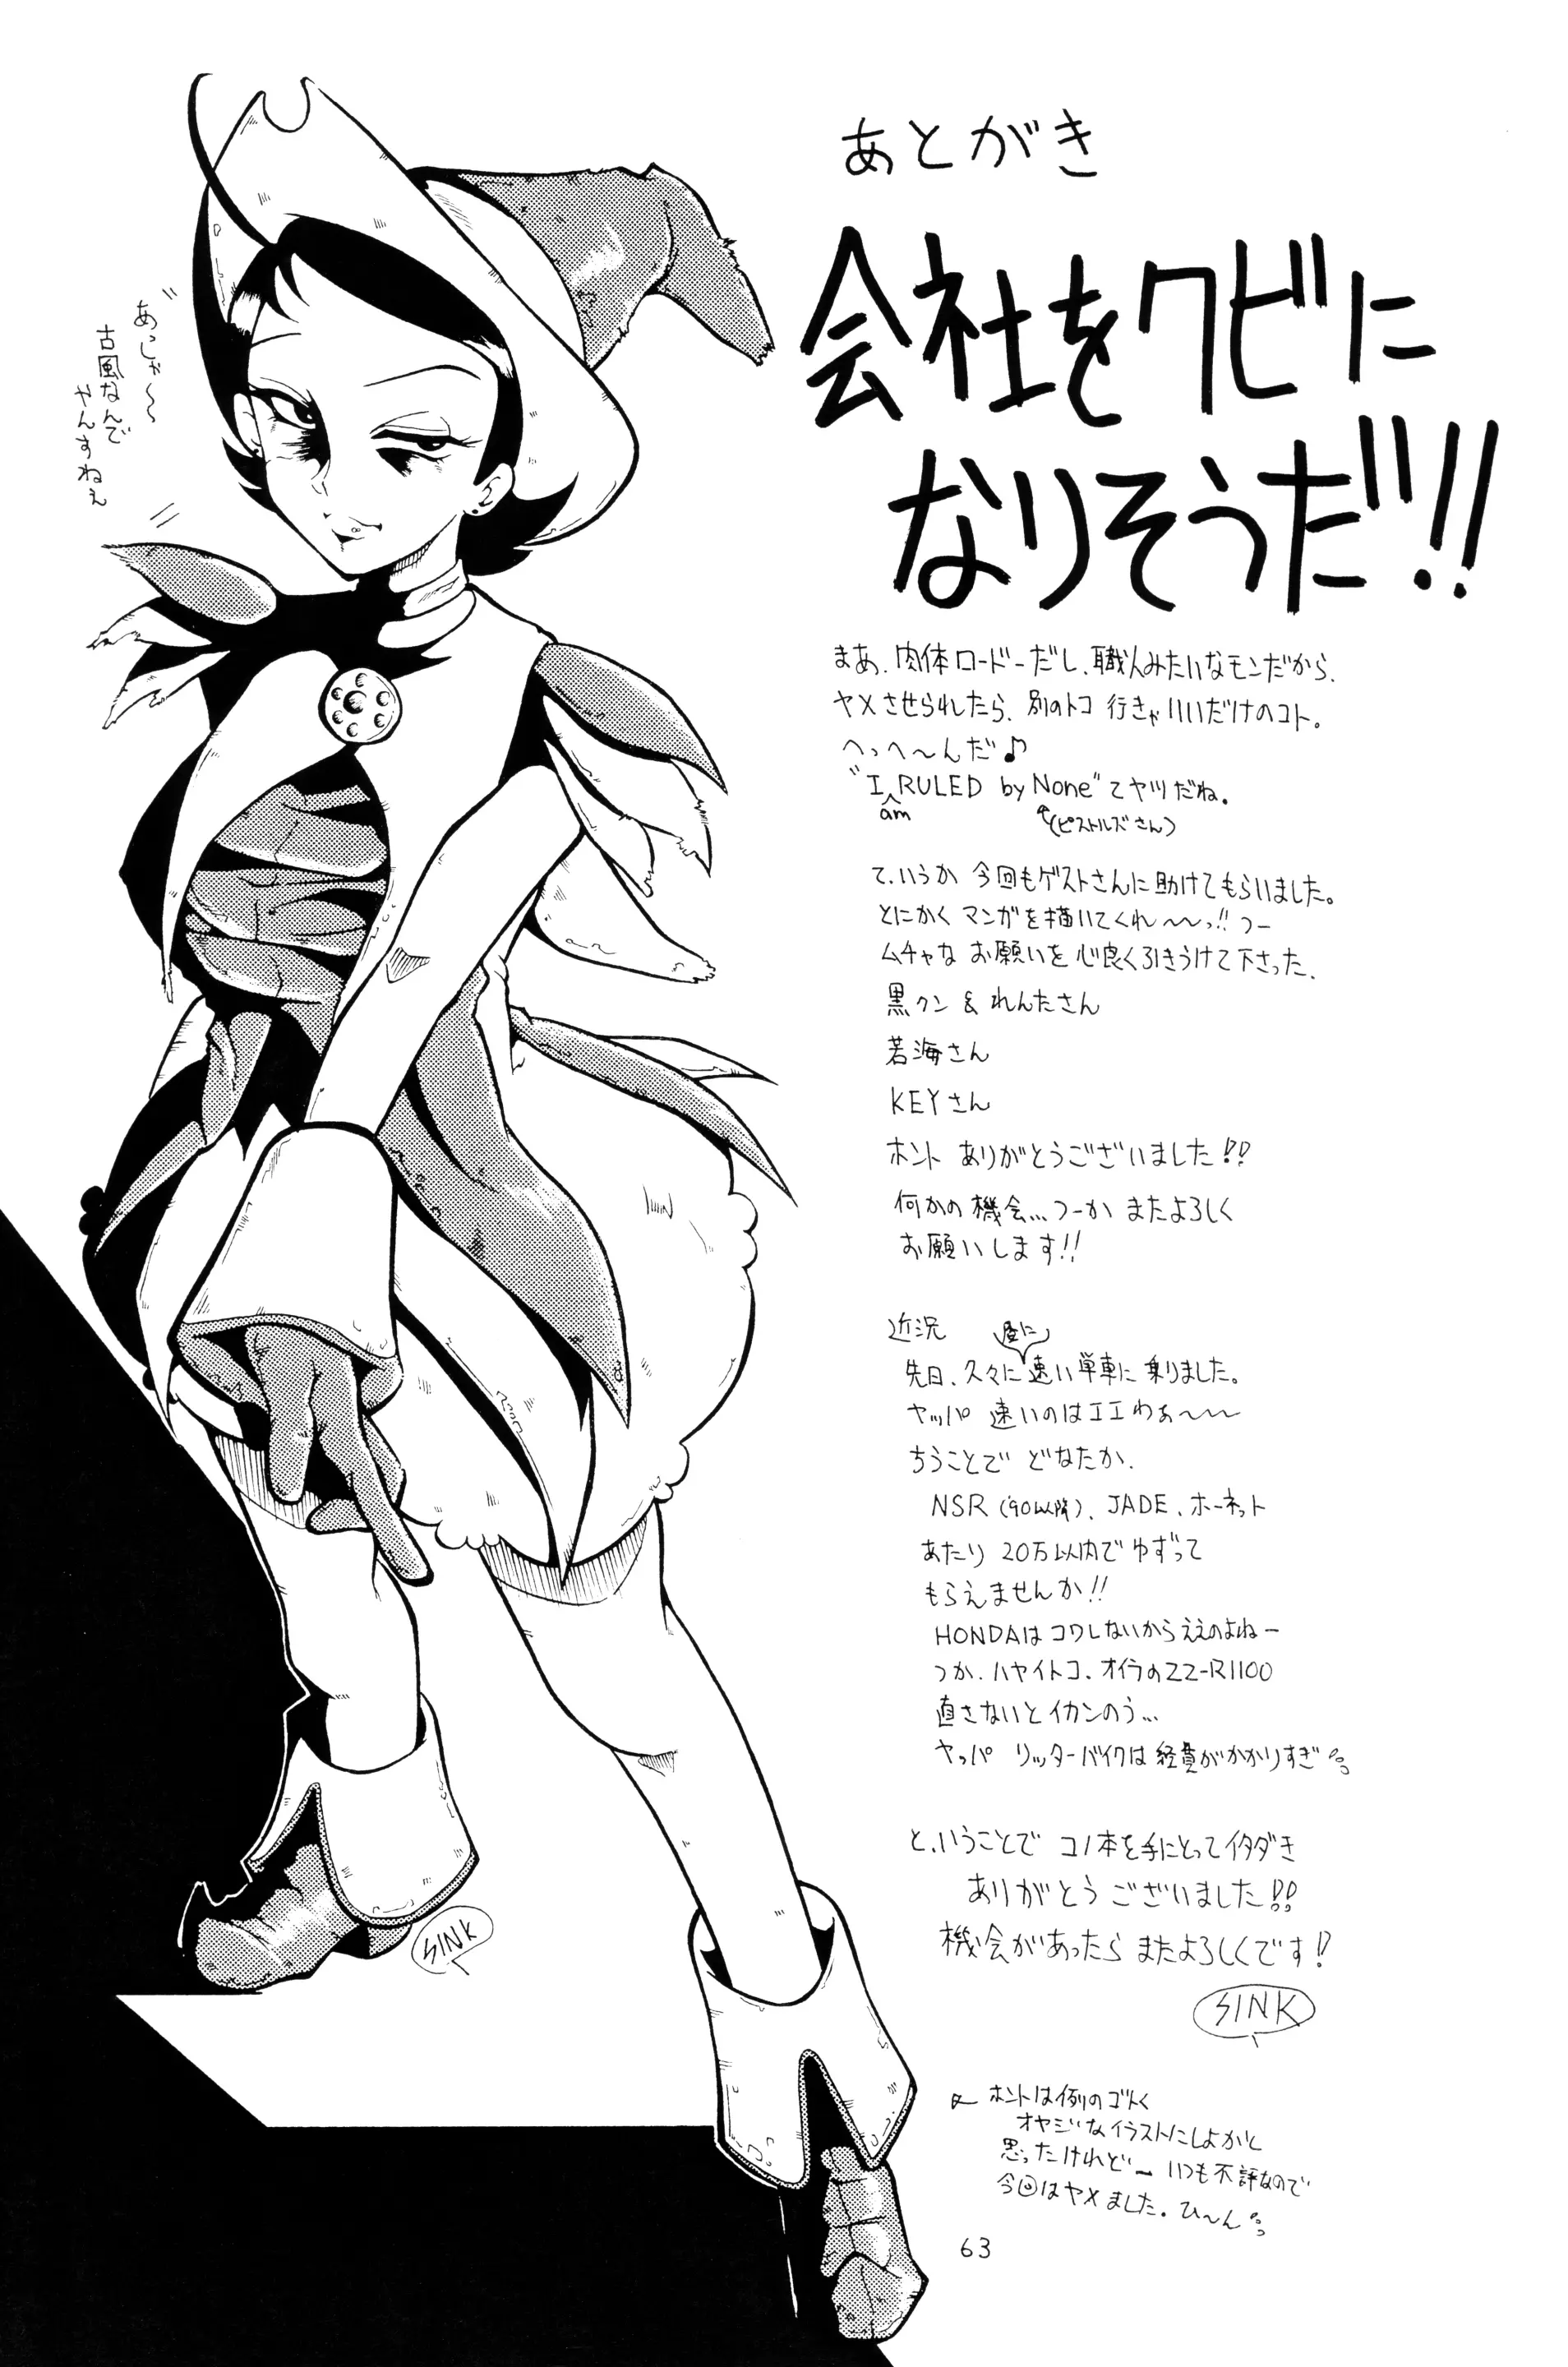 あとがき
会社をクビに
なりそうだ!!
まあ、肉体ロードーだし、職人みたいなモンだから、
ヤメさせられたら、別のトコ 行きゃいいだけのコト。
へっへ〜んだ♪
"I RULED by None"てヤツだね。
am
(ピストルズさん)
て、いうか 今回もゲストさんに助けてもらいました。
とにかく マンガを描いてくれ〜〜っ!! つー
ムチャな お願いを 心良く引きうけて下さった、
黒クン & れんたさん
若海さん
KEYさん
ホント ありがとうございました!!
何かの機会…つーか またよろしく
お願いします!!
近況
先日、久々に速い単車に乗りました。
ヤッパ 速いのはエエわぁ〜〜
ちうことで どなたか、
NSR ('90以降)、JADE、ホーネット
あたり 20万以内で ゆずって
もらえませんか!!
HONDAは コワレないから ええのよねー
つか、ハヤイトコ、オイラのZZ-R1100
直さないと イカンのう…
ヤッパ リッターバイクは 経費がかかりすぎ
と、いうことで コノ本を手にとってイタダき
ありがとう ございました!!
機会があったら またよろしくです!
SINK
ホントは例のゴトく
オヤジなイラストにしよかと
思ったけれど― いつも不評なので
今回はヤメました。ひ〜ん
63
あっしゃ〜〜
古風なんで
やんすねぇ
SINK